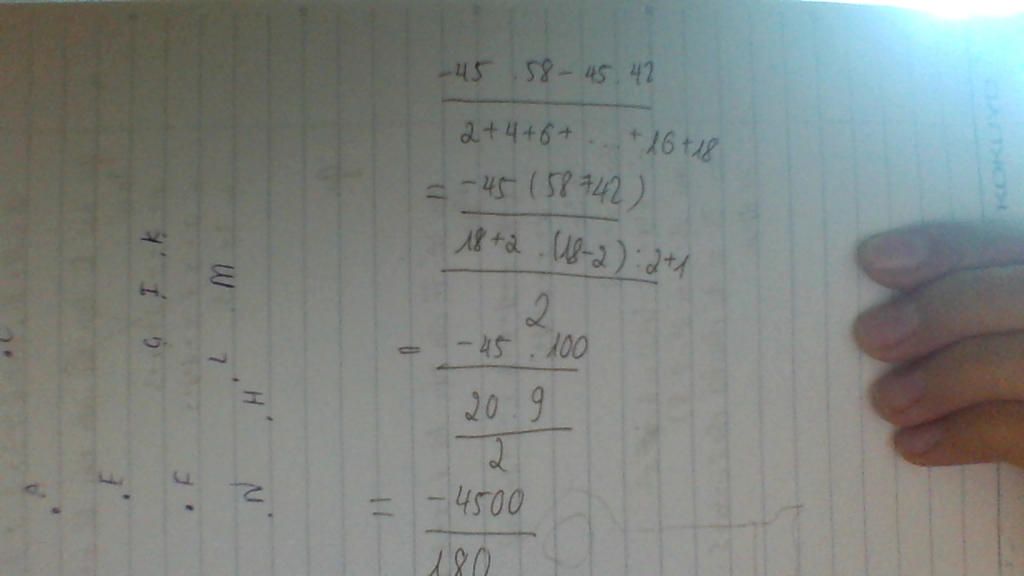 -45 . 58 - 45 . 42
2+4+6+ ... +16+18
= -45 (58+42)
18+2 . (18-2) : 2+1
2
= -45 . 100
20 . 9
2
= -4500
180
K
I
G
M
L
H
N
F
E
A
KOKUYO